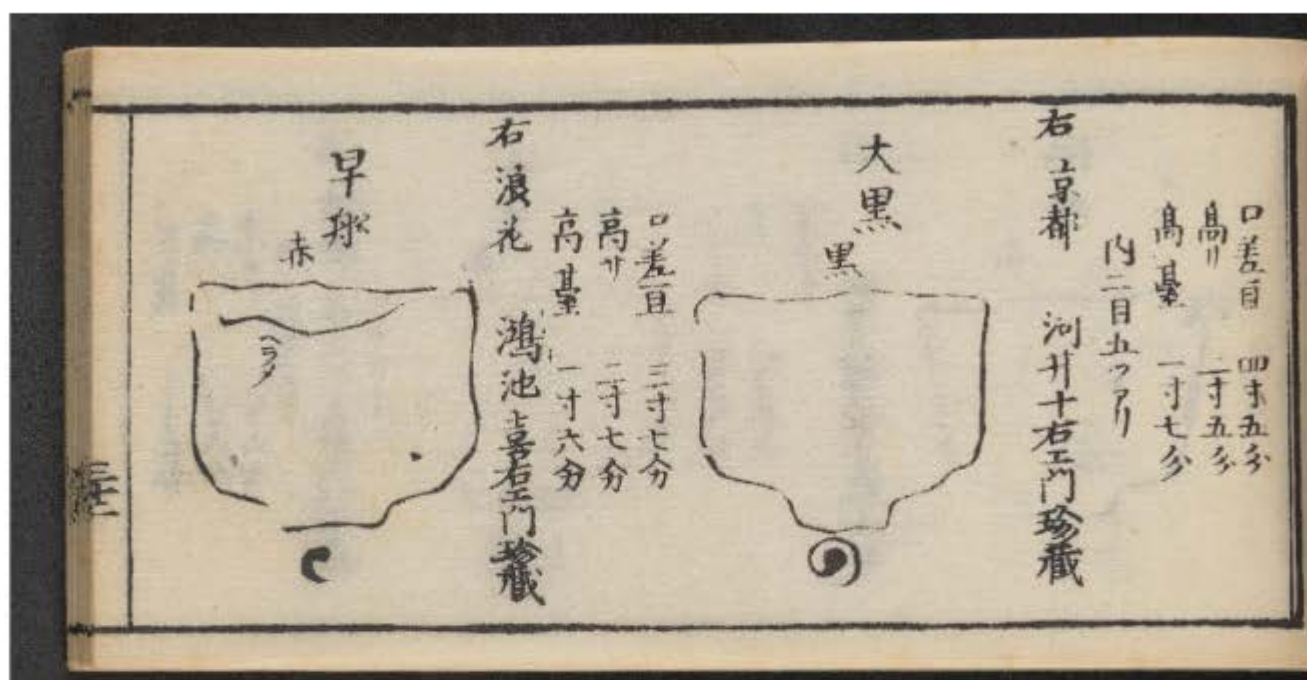 口差亘 四寸五分
高サ 二寸五分
高臺 一寸七分
内ニ目五ツアリ
右 京都 河井十右エ門珍藏
大黒
黒
口差亘 三寸七分
高サ 二寸七分
高臺 一寸六分
右 浪花 鴻池喜右エ門珍藏
早舩
赤
ヘラメ